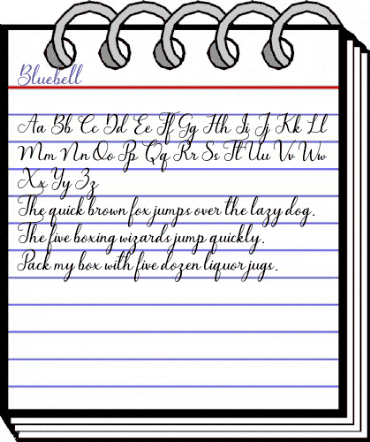 Bluebell
Aa Bb Cc Dd Ee Ff Gg Hh Ii Jj Kk Ll
Mm Nn Oo Pp Qq Rr Ss Tt Uu Vv Ww
Xx Yy Zz
The quick brown fox jumps over the lazy dog.
The five boxing wizards jump quickly.
Pack my box with five dozen liquor jugs.